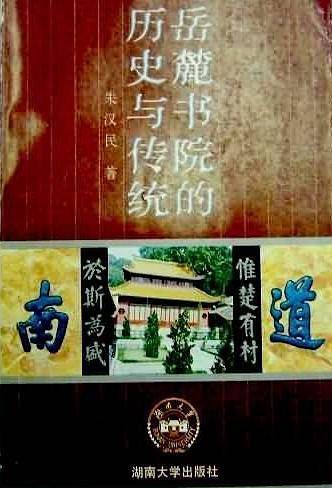 岳麓书院的
历史与传统
朱汉民 著
道
南
惟楚有材
於斯為盛
湖南大学出版社